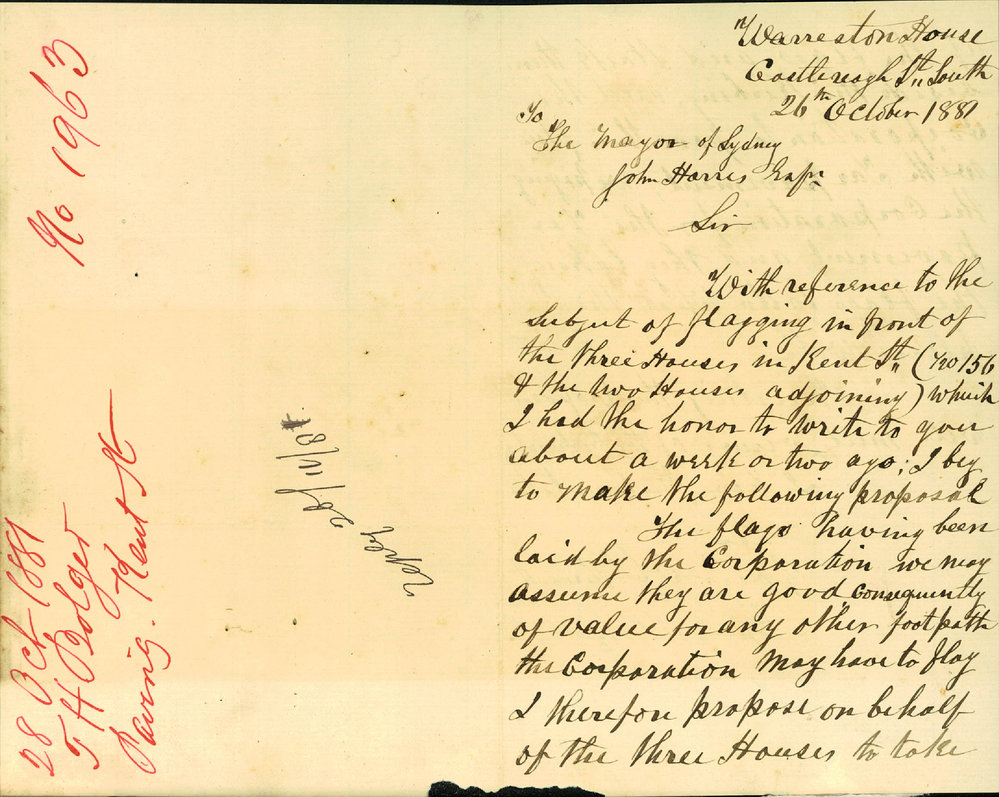 No 1963
28 Oct 1881
T H Bolger
Paving. Kent St
28/10/81
"Warreston House
Castlereagh St" South
26th October 1881
To
The Mayor of Sydney
John Harris Esqr
Sir
With reference to the
subject of flagging in front of
the three Houses in Kent St" (No 156
& the two Houses adjoining) which
I had the honor to write to you
about a week or two ago; I beg
to make the following proposal
The flags having been
laid by the Corporation we may
assume they are good, consequently
of value for any other footpath
the Corporation may have to flag
I therefore propose on behalf
of the three Houses to take